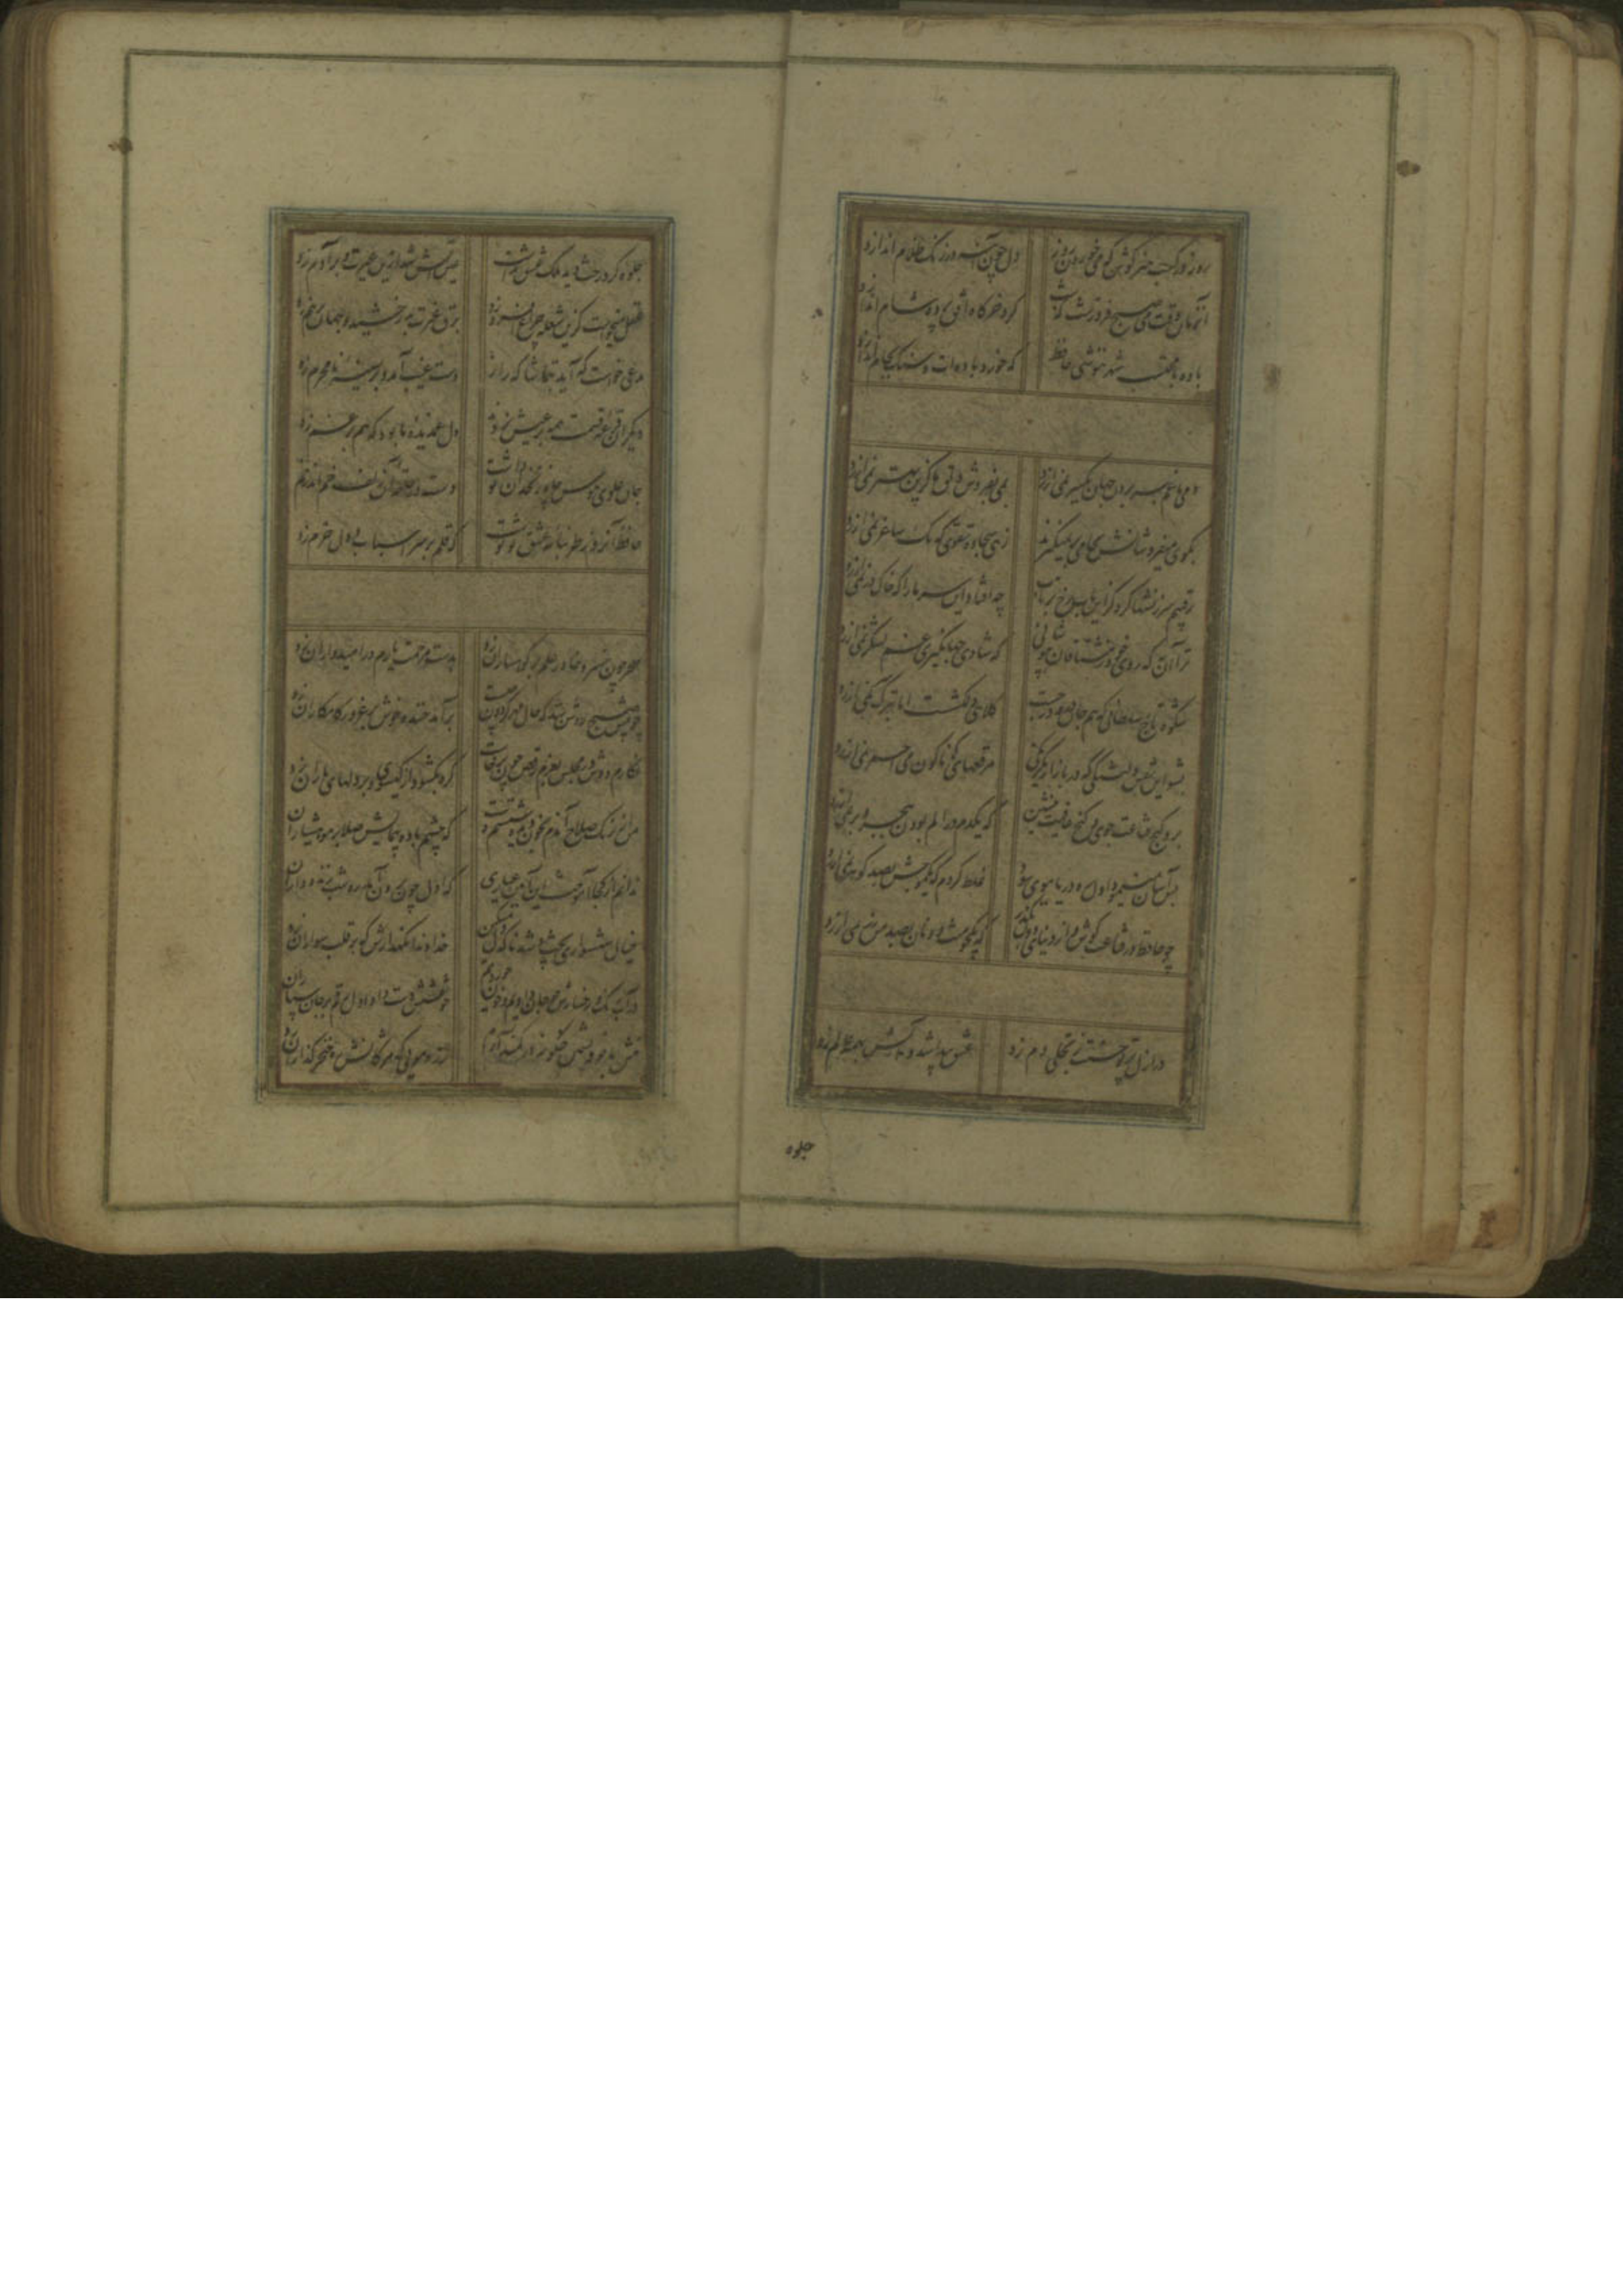 روز در کسب هنر کوش که می خوردن روز
دل چون آینه در زنگ ظلام اندازد
آنزمان وقت می صبح فروغست که شب
گرد خرگاه افق پرده شام اندازد
باده با محتسب شهر ننوشی حافظ
که خورد باده ات و سنگ بجام اندازد
دمی با غم بسر بردن جهان یکسر نمی ارزد
بمی بفروش دلق ما کزین بهتر نمی ارزد
بکوی میفروشانش بجامی بر نمیگیرند
زهی سجاده تقوی که یک ساغر نمی ارزد
رقیبم سرزنشها کرد کز این باب رخ برتاب
چه افتاد این سر ما را که خاک در نمی ارزد
ترا آن به که روی خود ز مشتاقان بپوشانی
که شادی جهانگیری غم لشکر نمی ارزد
شکوه تاج سلطانی که بیم جان درو درجست
کلاهی دلکش است اما بترک سر نمی ارزد
بشوی این نقش دلتنگی که در بازار یکرنگی
مرقعهای گوناگون می احمر نمی ارزد
برو گنج قناعت جوی و کنج عافیت بنشین
که یکدم در الم بودن ببحر و بر نمی ارزد
بس آسان مینمود اول غم دریا ببوی سود
غلط کردم که یک موجش بصد گوهر نمی ارزد
چو حافظ در قناعت کوش و از دنیای دون بگذر
که یکجو منت دونان بصد من زر نمی ارزد
در ازل پرتو حسنت ز تجلی دم زد
عشق پیدا شد و آتش بهمه عالم زد
جلوه
جلوه کرد رخت دید ملک عشق نداشت
عین آتش شد ازین غیرت و بر آدم زد
عقل میخواست کزین شعله چراغ افروزد
برق غیرت بدرخشید و جهان برهم زد
مدعی خواست که آید بتماشاگه راز
دست غیب آمد و بر سینه نامحرم زد
دیگران قرعه قسمت همه بر عیش زدند
دل غمدیده ما بود که هم بر غم زد
جان علوی هوس چاه زنخدان تو داشت
دست در حلقه آن زلف خم اندر خم زد
حافظ آنروز طربنامه عشق تو نوشت
که قلم بر سر اسباب دل خرم زد
سحر چون خسرو خاور علم بر کوهساران زد
بدست مرحمت یارم در امیدواران زد
چو پیش صبح روشن شد که حال مهر گردون چیست
برآمد خنده خوش بر غرور کامکاران زد
نگارم دوش در مجلس بعزم رقص چون برخاست
گره بگشود از گیسو و بر دلهای یاران زد
من از رنگ صلاح آندم بخون دل بشستم دست
که چشم باده پیمایش صلا بر هوشیاران زد
ندانم از کجا آموخت این آیین عیاری
که اول چون برون آمد ره شب زنده داران زد
خیال شهسواری پخت و شد ناگه دل مسکین
خداوندا نگهدارش که بر قلب سواران زد
در آب و رنگ رخسارش چه جان دادیم و خون خوردیم
چو نقشش دست داد اول رقم بر جان سپاران زد
منش با خرقه پشمین کجا اندر کمند آرم
زره مویی که مژگانش ره خنجر گذاران زد